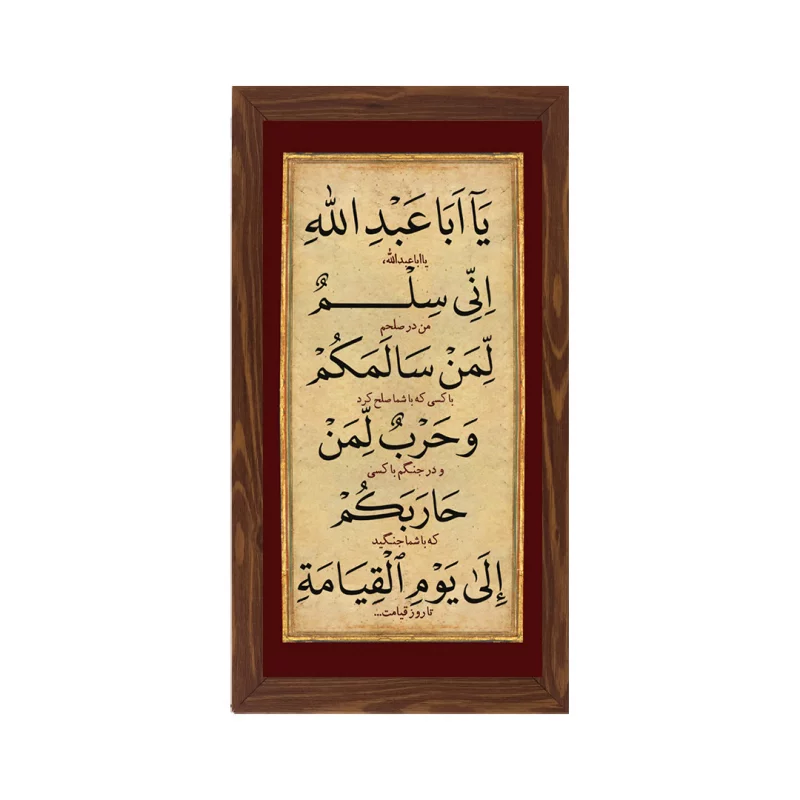 يَآ اَبَا عَبْدِ اللهِ
یا اباعبدالله،
اِنِّى سِلْـــــــمٌ
من در صلحم
لِّمَنْ سَالَمَكُمْ
با کسی که با شما صلح کرد
وَ حَرْبٌ لِّمَنْ
و در جنگم با کسی
حَارَبَكُمْ
که با شما جنگید
إِلَىٰ يَوْمِ ٱلْقِيَامَةِ
تا روز قیامت...